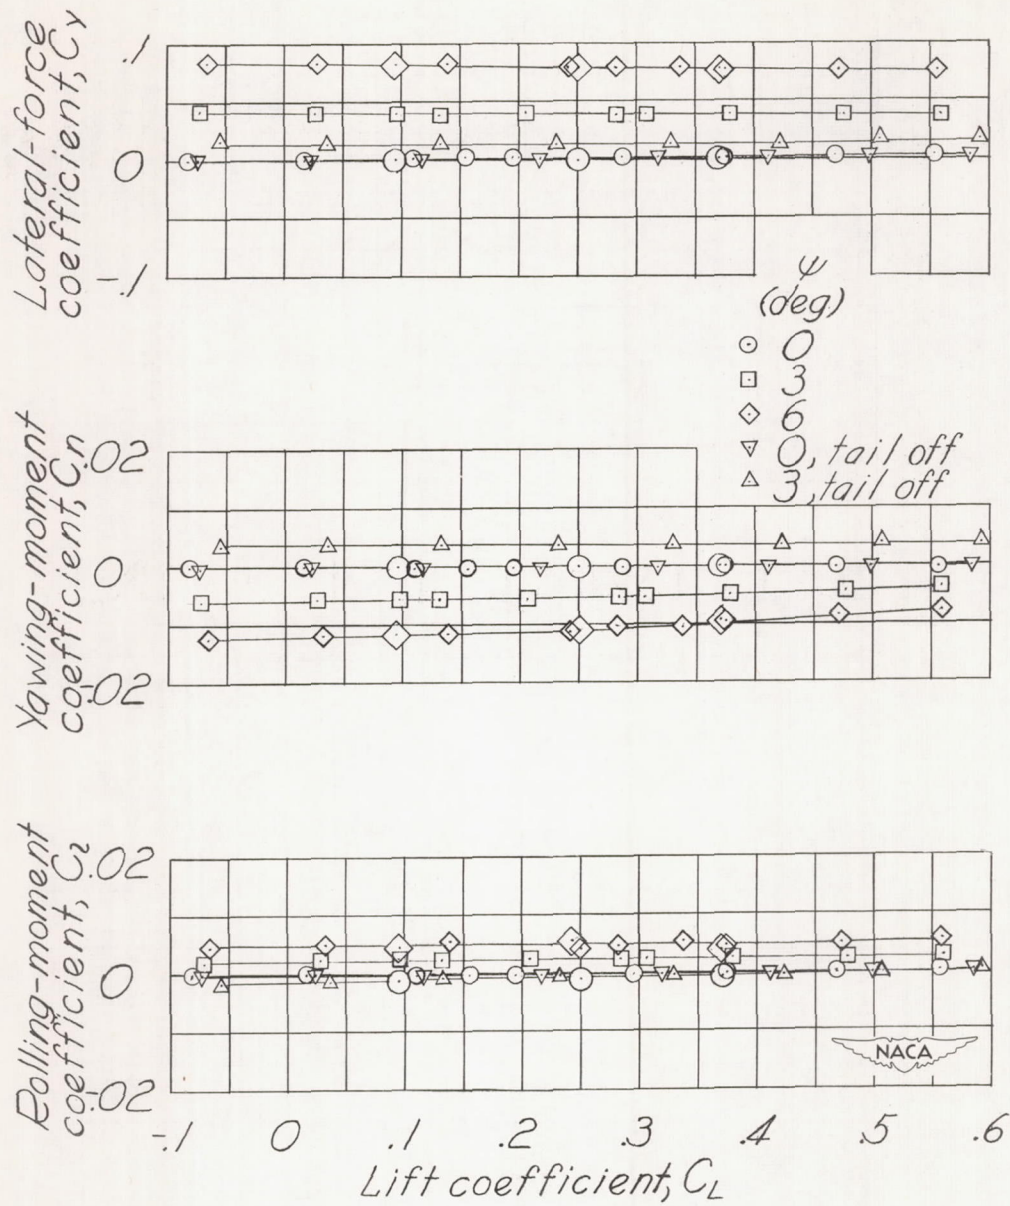 Lateral-force
coefficient, C_Y
.1
0
-.1
ψ
(deg)
0
3
6
0, tail off
3, tail off
Yawing-moment
coefficient, C_n
.02
0
-.02
Rolling-moment
coefficient, C_l
.02
0
-.02
NACA
-.1 0 .1 .2 .3 .4 .5 .6
Lift coefficient, C_L